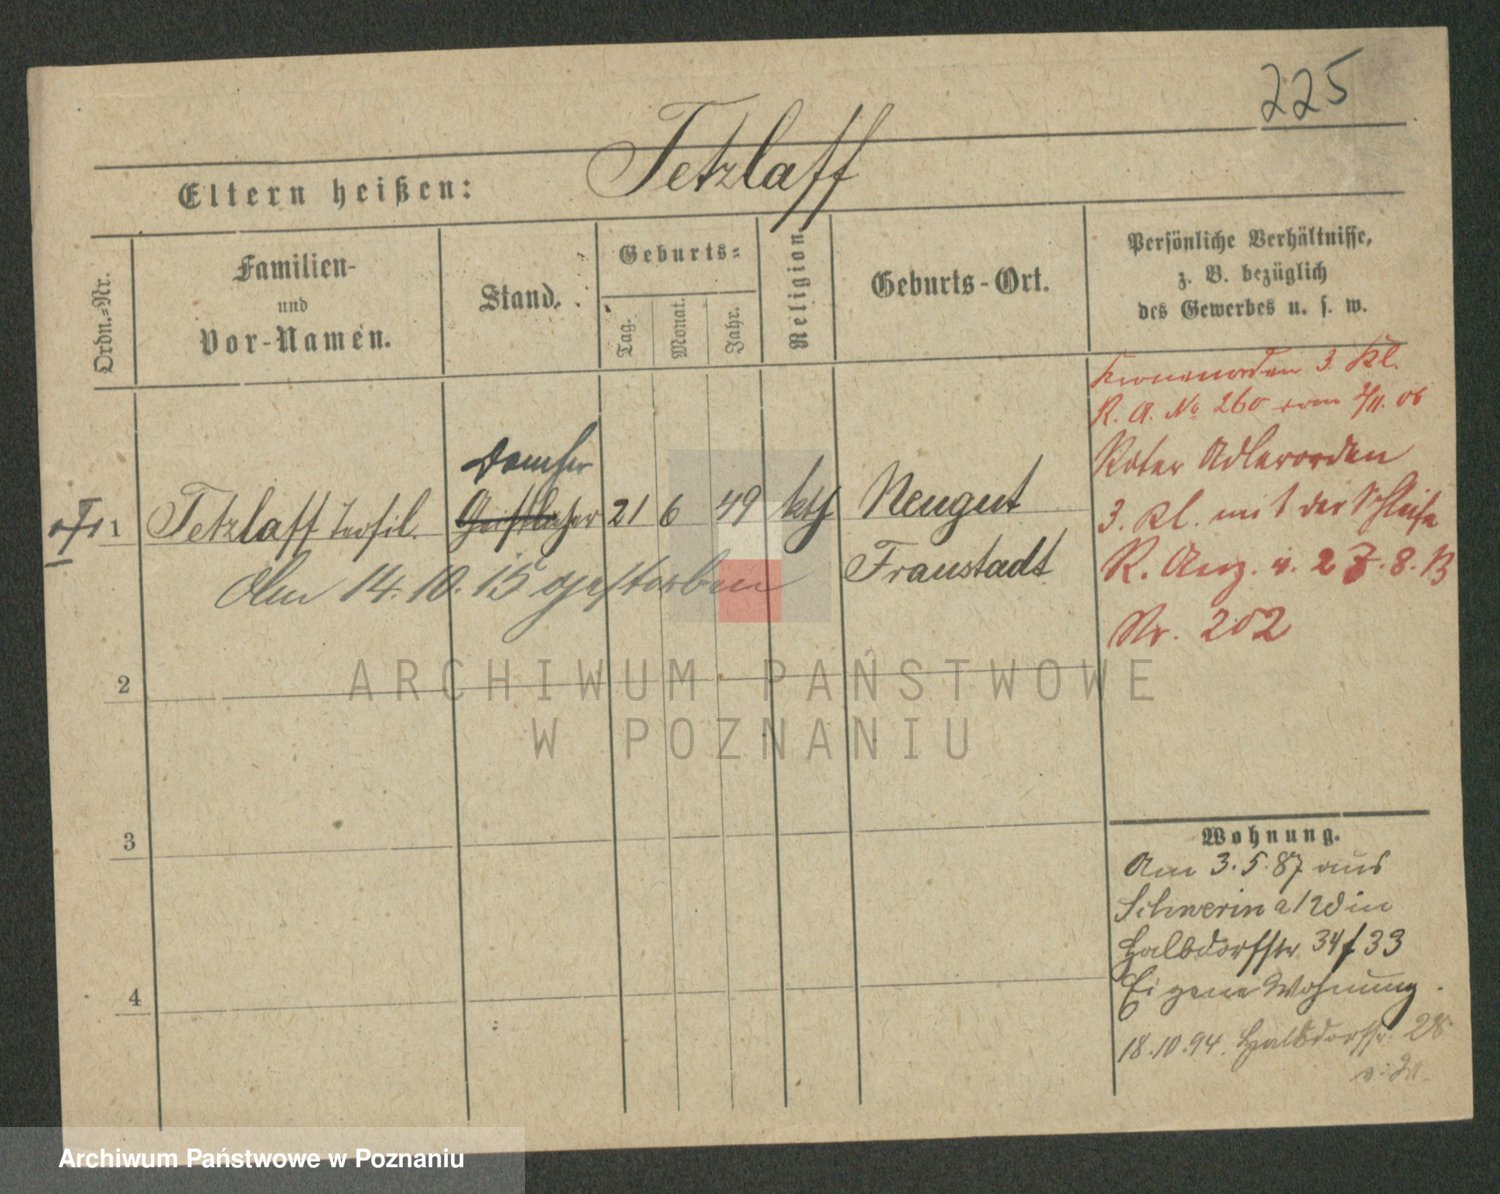 225
Tetzlaff
Eltern heißen:
Ordn.-Nr.
Familien-
und
Vor-Namen.
Stand.
Geburts-
Tag.
Monat.
Jahr.
Religion
Geburts-Ort.
Persönliche Verhältnisse,
z. B. bezüglich
des Gewerbes u. s. w.
Kronenorden 3. Kl.
R. A. No 260 vom 11. 06
Roter Adlerorden
3. Kl. mit der Schleife
R. Anz. v. 27.8.13
Nr. 202
Domherr
1 Tetzlaff Teofil. Geistlicher 21 6 49 kth Neugut
Fraustadt
den 14.10.15 gestorben
2
3
4
Wohnung.
Am 3.5.87 aus
Schwerin a/W in
Halbdorfstr. 34/33
Eigene Wohnung.
18.10.94. Halbdorfstr. 28
ARCHIWUM PAŃSTWOWE
W POZNANIU
Archiwum Państwowe w Poznaniu